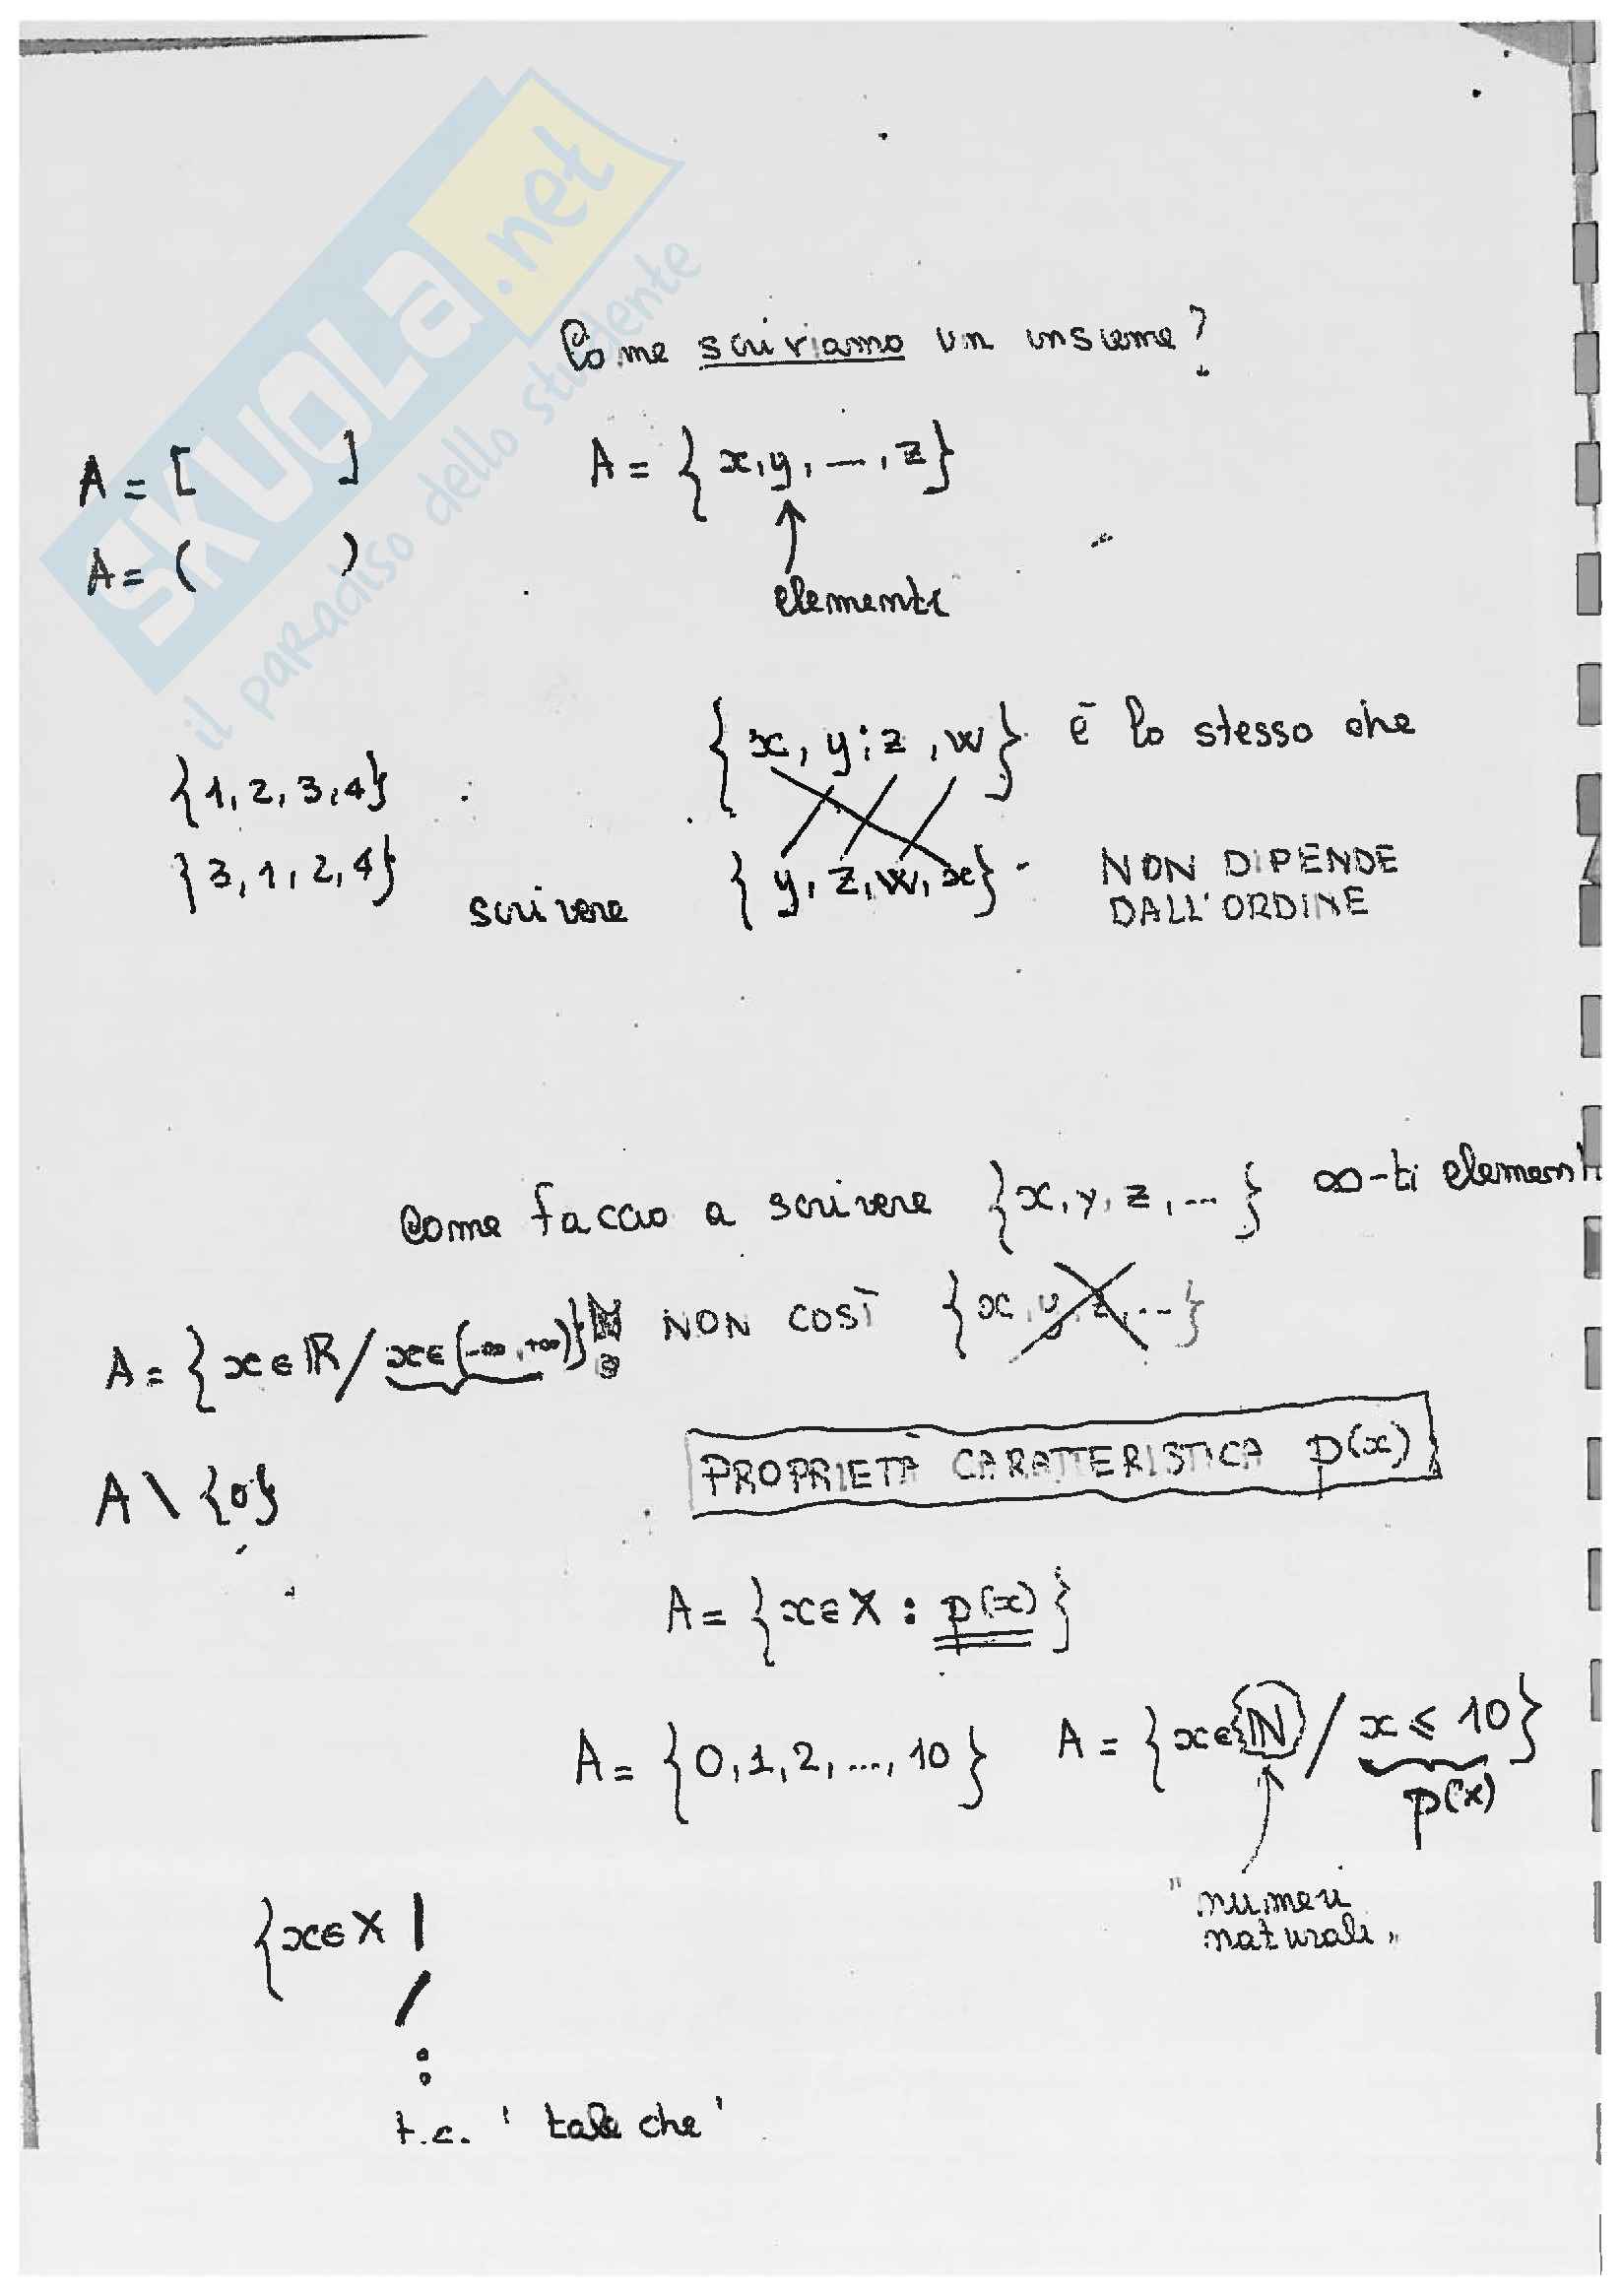 SKUOLA.net
il paradiso dello studente
Come scriviamo un insieme?
A = [ ]
A = { x, y, ..., z}
A = ( )
elementi
{ x, y, z, w} è lo stesso che
{1, 2, 3, 4}
{3, 1, 2, 4}
scrivere { y, z, w, x} NON DIPENDE
DALL'ORDINE
Come faccio a scrivere {x, y, z, ... } ∞-ti elementi
A = {x ∈ ℝ / x ∈ (-∞, +∞)} NON COSÌ {x, y, z, ...}
PROPRIETÀ CARATTERISTICA p(x)
A \ {0}
A = {x ∈ X : p(x)}
A = {0, 1, 2, ..., 10} A = {x ∈ ℕ / x ⩽ 10}
p(x)
"numeri
naturali"
{x ∈ X |
/
:
t.c. 'tale che'